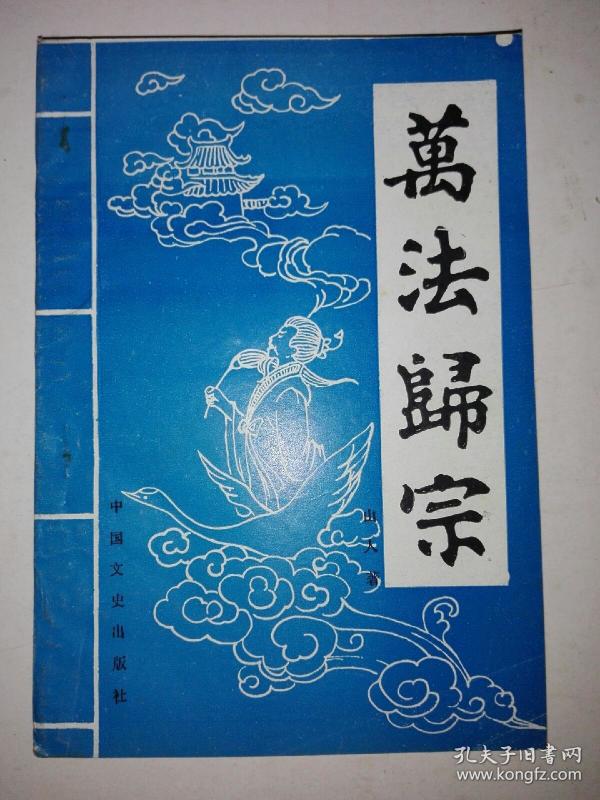 萬法歸宗
山人著
中国文史出版社
孔夫子旧书网
www.kongfz.com